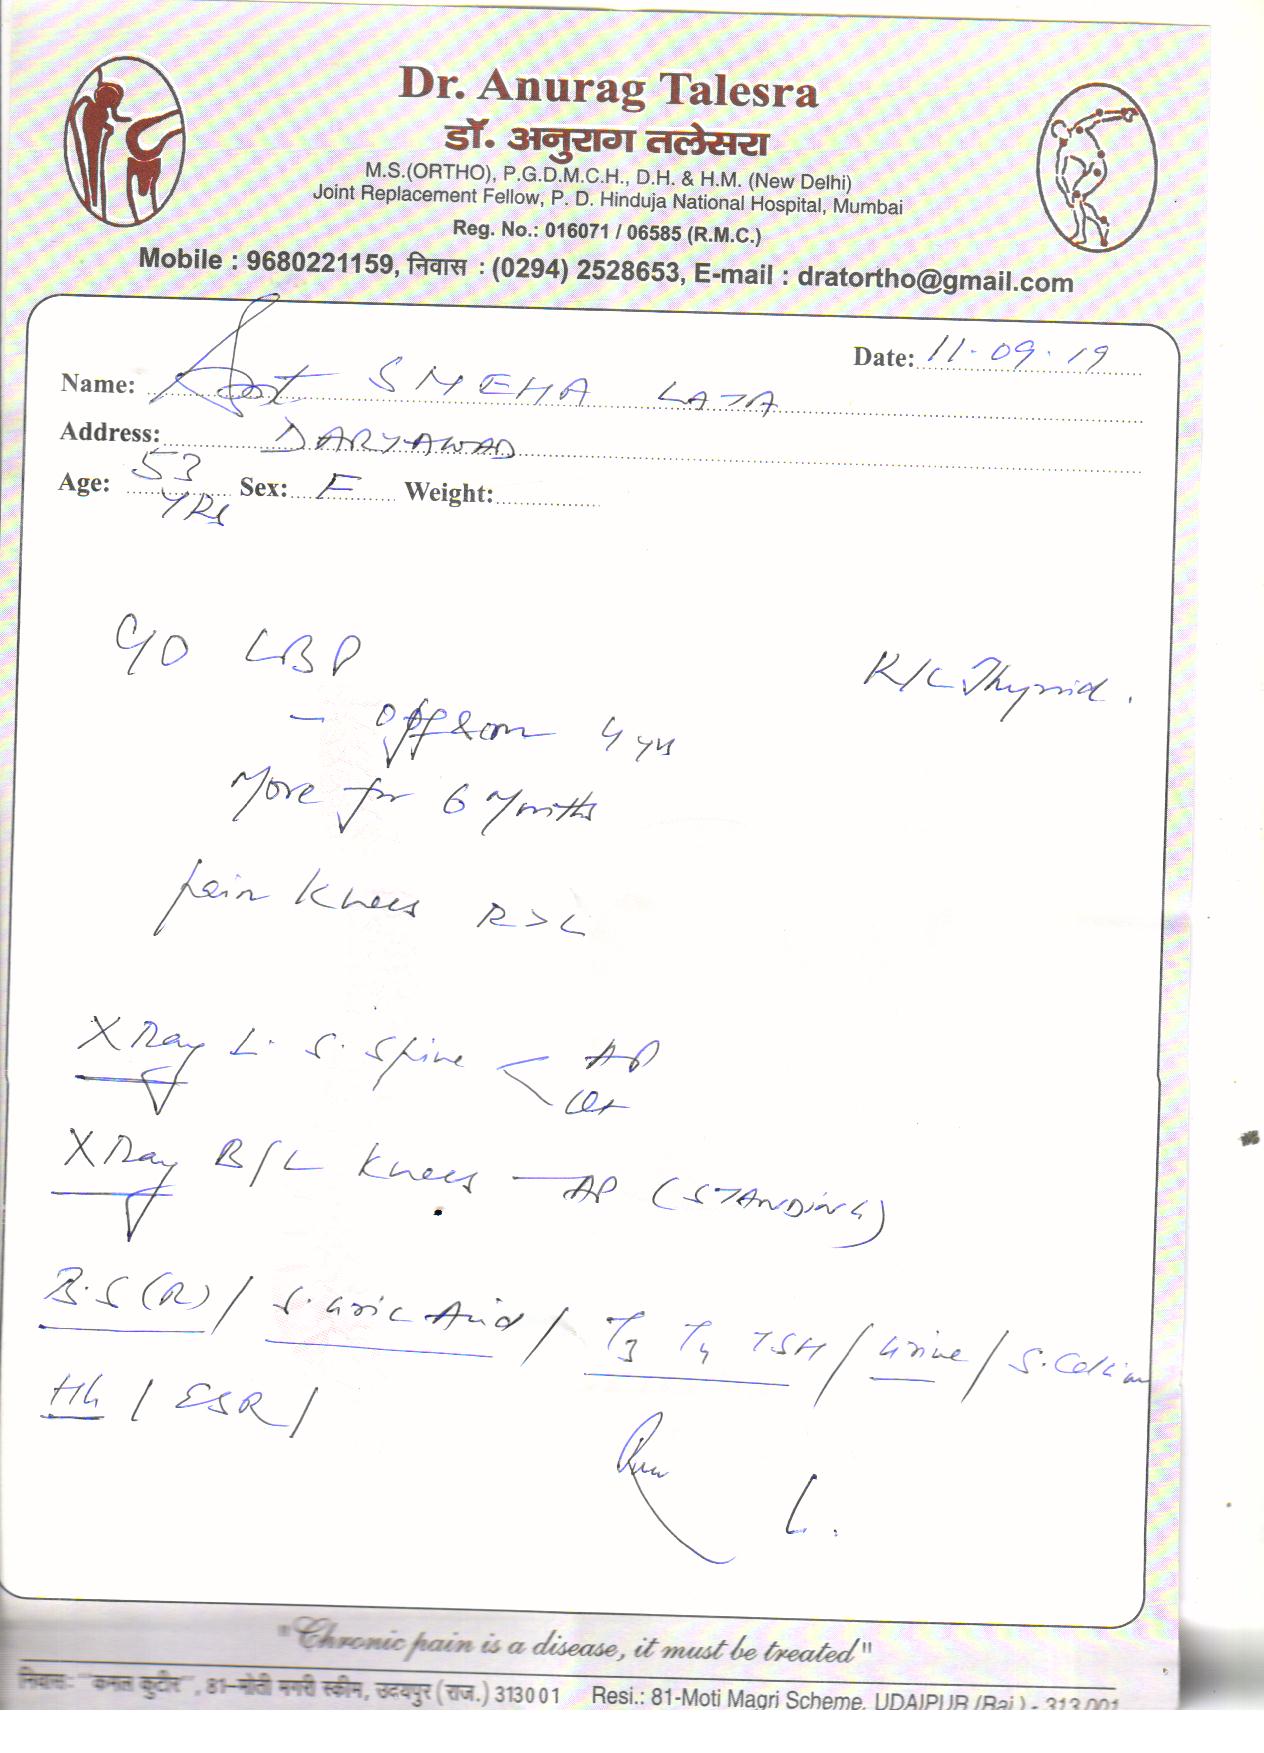 Dr. Anurag Talesra
डॉ. अनुराग तलेसरा
M.S.(ORTHO), P.G.D.M.C.H., D.H. & H.M. (New Delhi)
Joint Replacement Fellow, P. D. Hinduja National Hospital, Mumbai
Reg. No.: 016071 / 06585 (R.M.C.)
Mobile : 9680221159, निवास : (0294) 2528653, E-mail : dratortho@gmail.com
Date: 11.09.19
Name: SNEHA LATA
Address: DARYAWAD
Age: 53 YRs Sex: F Weight:
C/O LBP
K/C Thyroid.
- off & on 4 yrs
More for 6 Months
pain Knees R > L
X Ray L. S. Spine < AP
Lat
X Ray B/L Knees - AP (STANDING)
B.S (R) / S. Uric Acid / T3 T4 TSH / Urine / S. Calcium
Hb / ESR /
"Chronic pain is a disease, it must be treated"
निवास: "कमल कुटीर", 81-मोती मगरी स्कीम, उदयपुर (राज.) 313001 Resi.: 81-Moti Magri Scheme, UDAIPUR (Raj.) - 313 001